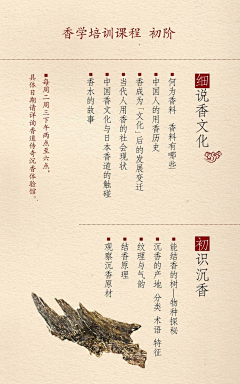 香学培训课程 初阶
细说香文化
何为香料 香料有哪些
中国人的用香历史
香成为「文化」后的发展变迁
当代人用香的社会现状
中国香文化与日本香道的触碰
香水的故事
每周二周三下午两点至六点，
具体日期请详询香道传奇沉香体验馆。
初识沉香
能结香的树—物种探秘
沉香的产地 分类 术语 特征
纹理与气韵
结香原理
观察沉香原材